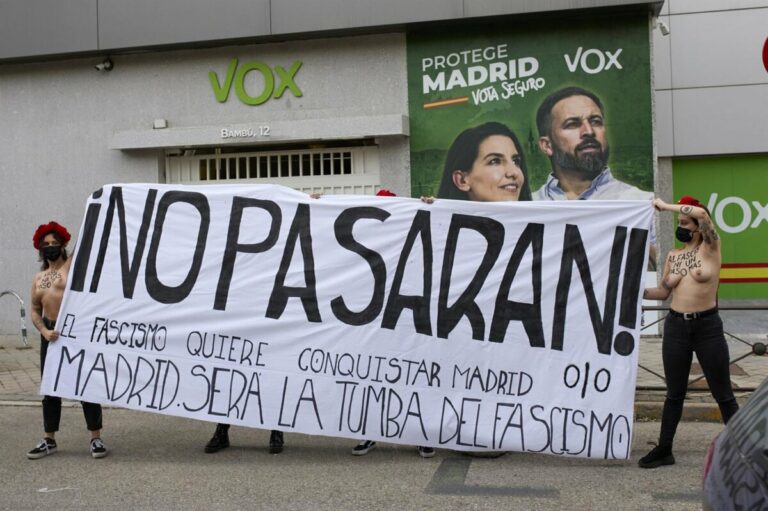 VOX
BAMBÚ, 12
PROTEGE
MADRID
VOTA SEGURO
VOX
VOX
¡NO PASARAN!
EL FASCISMO QUIERE CONQUISTAR MADRID
MADRID. SERÁ LA TUMBA DEL FASCISMO
AL FASCI
NI UN
PASO MÁS